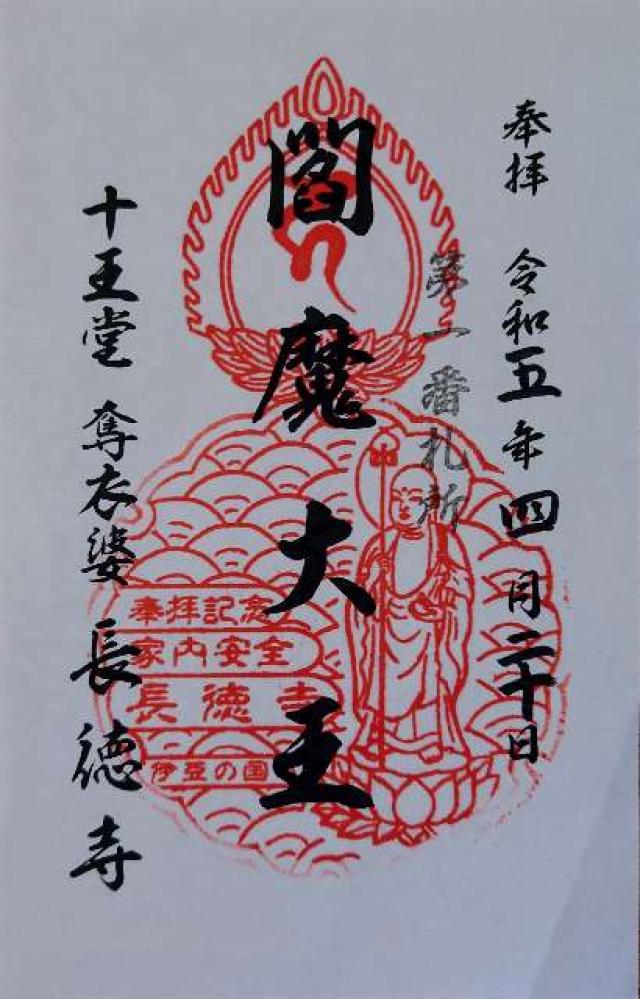 奉拝 令和五年四月二十日
第一番札所
閻魔大王
十王堂 奪衣婆 長徳寺
奉拝記念
家内安全
長徳寺
伊豆の国